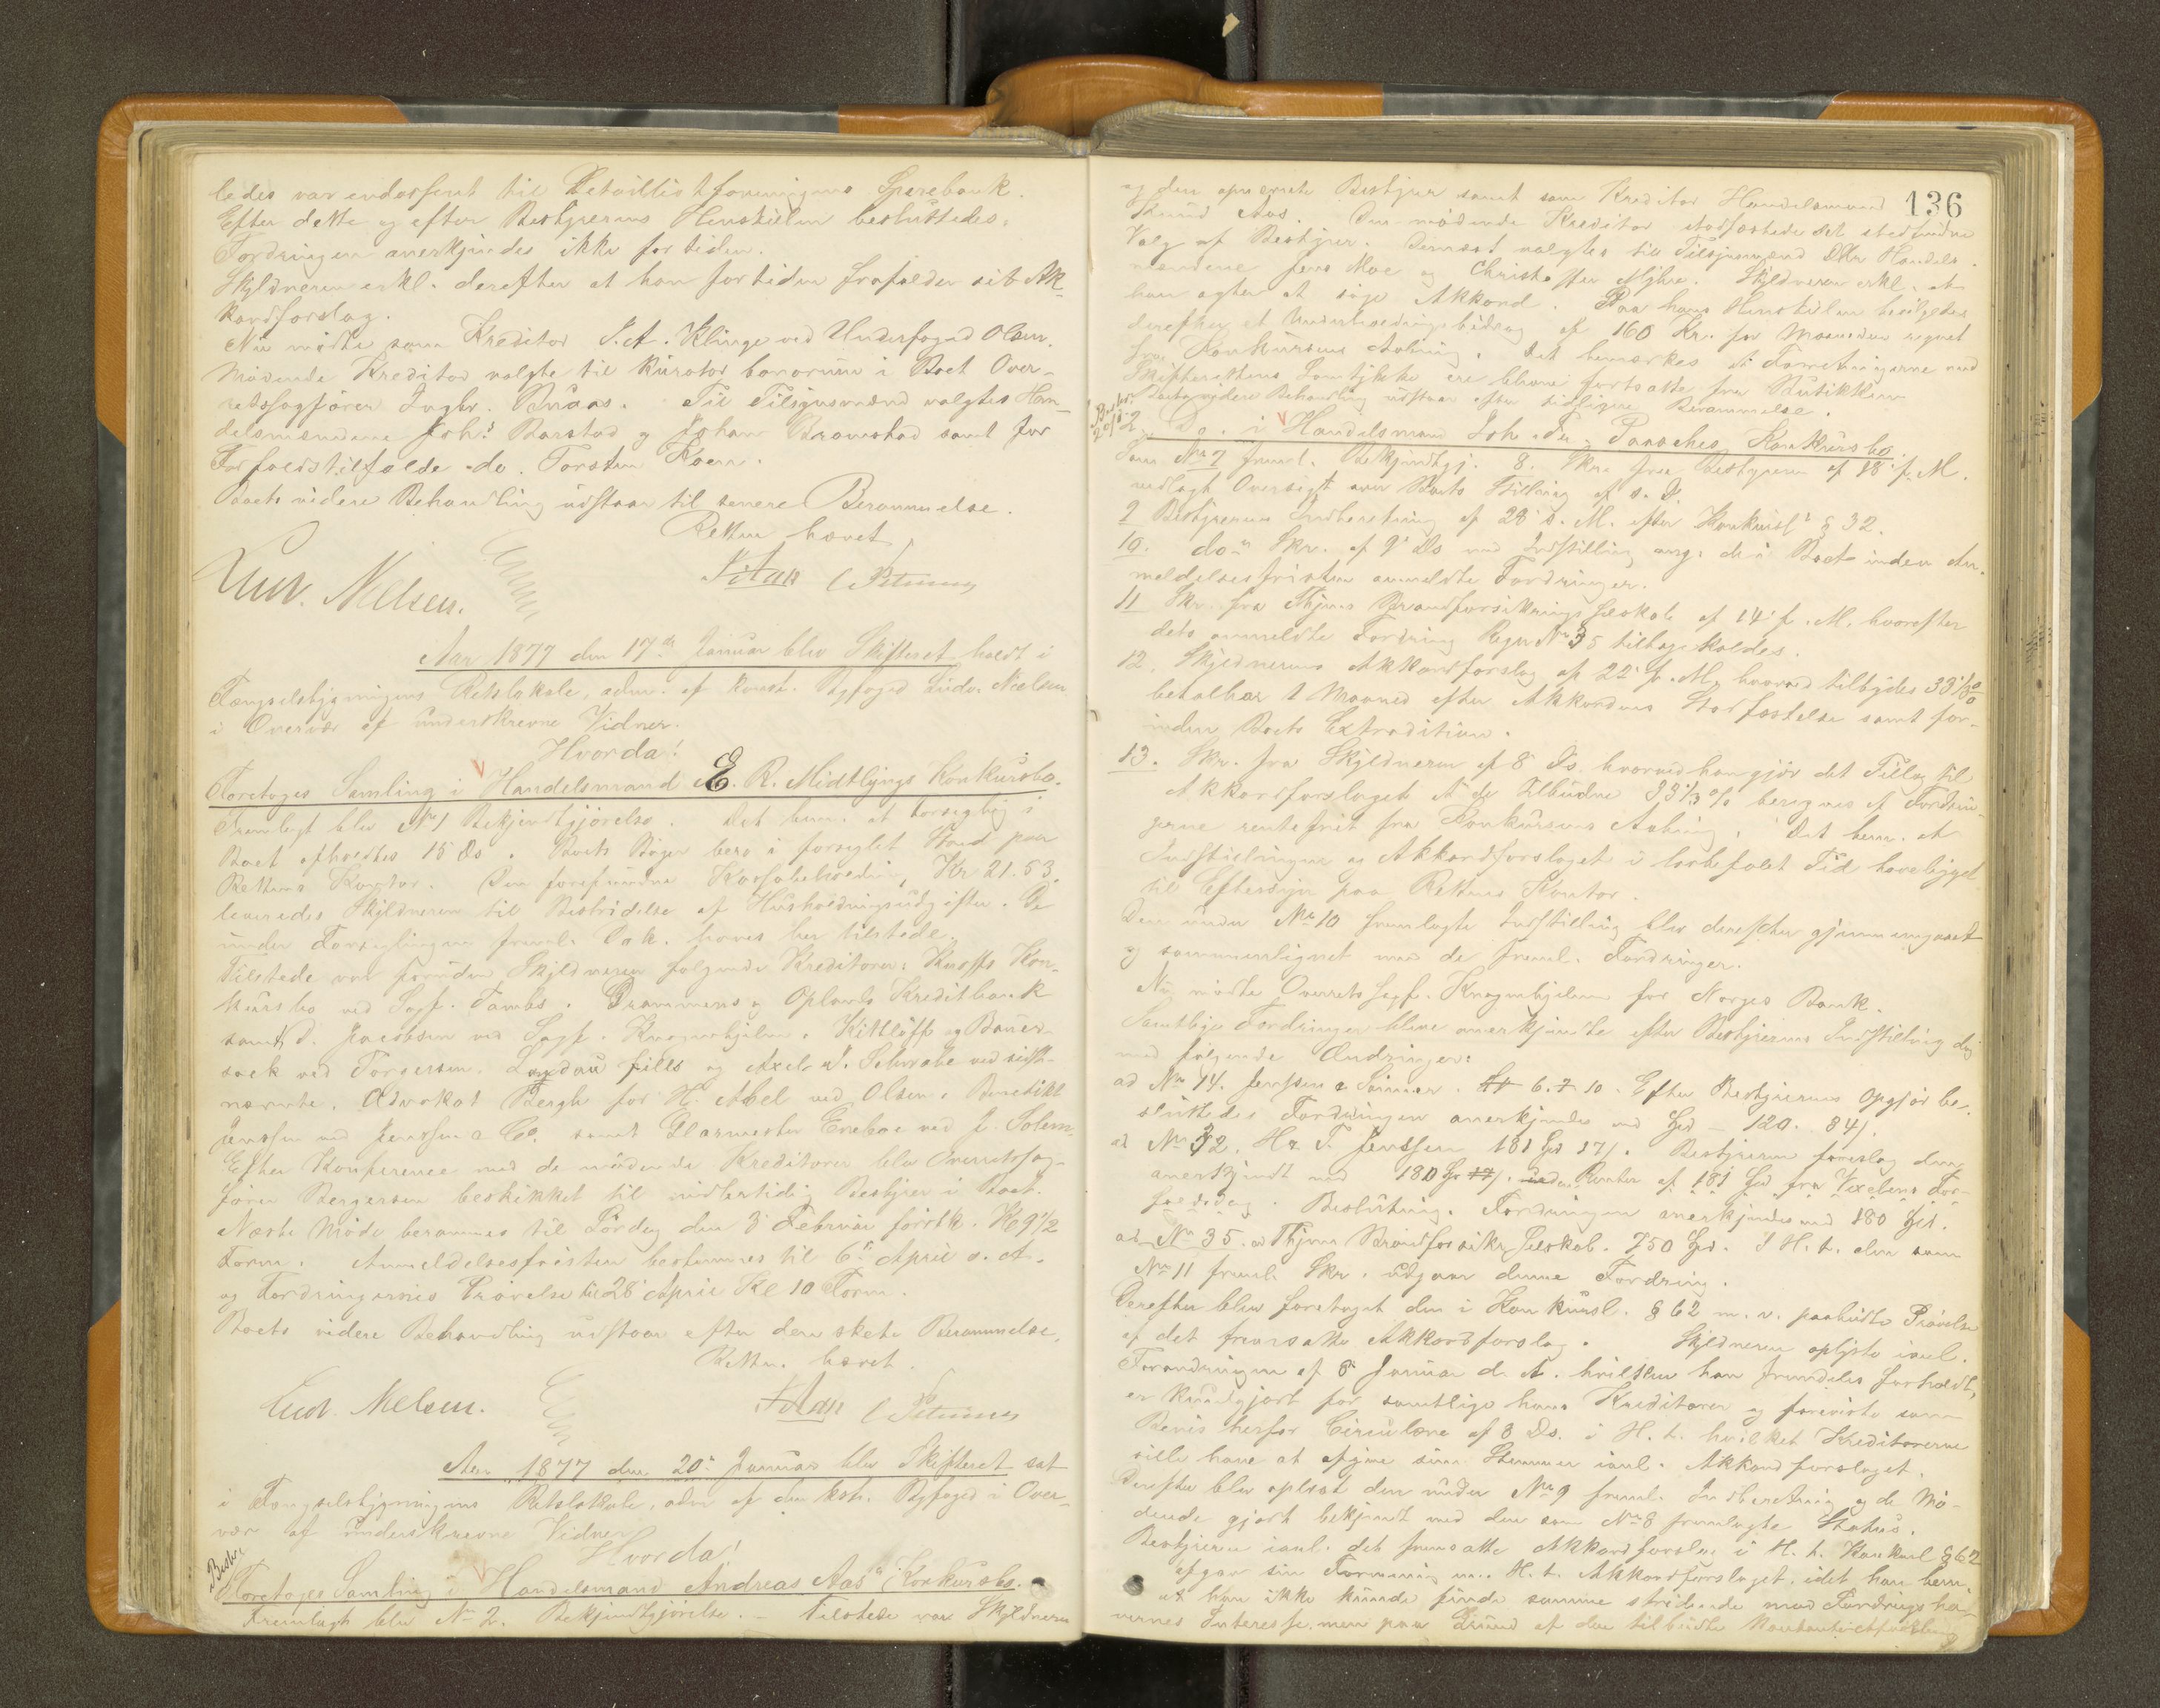 ledes var endosseret til Detaillistforeningens Sparebank.
Efter dette og efter Bestyrerens Henstillen besluttedes:
Fordringen anerkjendes ikke for tiden.
Skyldneren erkl. derefter at han for tiden frafalder sit Ak-
kordforslag.
Nu mødte som Kreditor J. A. Klinge ved Underfoged Olsen.
Mødende Kreditor valgte til Kurator bonorum i Boet Over-
retssagfører Ingbr. Til Tilsynsmænd valgtes Han-
delsmændene Johs Barstad og Johan Bramstad samt for
Forfaldstilfælde do. Torsten Roen.
Boets videre Behandling udstaar til senere Berammelse.
Retten hævet
Ludv. Nielsen.
Aar 1877 den 17de Januar blev Skifteret holdt i
Fængselsbygningens Retslokale, adm. af const. Byfoged Ludv. Nielsen
i Overvær af underskrevne Vidner.
Hvorda!
Foretoges Samling i Handelsmand E. R. Midtlyngs Konkursbo.
Fremlagt blev No 1 Bekjendtgjørelse. Det bem. at Forsegling i
Boet afholdtes 15 ds. Boets Bøger bero i forseglet Stand paa
Rettens Kontor. Den forefundne Kassabeholdning Kr 21.53.
leveredes Skyldneren til Bestridelse af Husholdningsudgifter. De
under Forseglingen freml. Dok. haves her tilstede.
Tilstede var foruden Skyldneren følgende Kreditorer: Kon-
kursbo ved Sagf. Tambs. Drammens og Oplands Kreditbank
samt D. Jacobsen ved Sagf. Knagenhjelm. Kittlaff og Bauer-
sack ved Torgersen. Landau fils og Axel J. Schwabe ved sidst-
nævnte. Advokat Bergh for H. Abel ved Olsen. Benedikt
Jenssen ved Jenssen & Co. samt Glarmester Eneboe ved J. Solem.
Efter Konference med de mødende Kreditorer blev Overretssag-
fører Bergersen beskikket til midlertidig Bestyrer i Boet.
Næste Møde berammes til Lørdag den 3 Februar førstk. Kl 9 1/2
Form. Anmeldelsesfristen bestemmes til 6te April d. A.
og Fordringernes Prøvelse til 28 April Kl 10 Form.
Boets videre Behandling udstaar efter den skete Berammelse,
Retten hævet.
Ludv. Nielsen.
Aar 1877 den 20de Januar blev Skifteret sat
i Fængselsbygningens Retslokale, adm af den kst. Byfoged i Over-
vær af underskrevne Vidner
Hvorda!
Foretoges Samling i Handelsmand Andreas Aas's Konkursbo.
Fremlagt blev No 2. Bekjendtgjørelse. – Tilstede var Skyldneren
136
og den opnævnte Bestyrer samt som Kreditor Handelsmand
Knud Aas. Den mødende Kreditor stadfæstede det stedfundne
Valg af Bestyrer. Dernæst valgtes til Tilsynsmænd DHr Handels-
mændene Jens Moe og Christoffer Myhre. Skyldneren erkl. at
han agter at søge Akkord. Paa hans Henstillen bevilgedes
derefter et Underholdningsbidrag af 160 Kr. for Maaneden regnet
fra Konkursens Aabning. Det bemærkes at Forretningerne med
Skifterettens Samtykke ere blevne fortsatte fra Butikken
Boets videre Behandling udstaar efter tidligere Berammelse.
Do. i Handelsmand Joh. Fr. Paasches Konkursbo.
Som No 7 freml. Bekjendtgj. 8. Skr. fra Bestyreren af 18 f. M.
vedlagt Oversigt over Boets Stilling af s. D.
9 Bestyrerens Indberetning af 28 s. M. efter Konkursl's § 32.
10. do's Skr. af 9 Ds med Indstilling ang. de i Boet inden An-
meldelsesfristen anmeldte Fordringer.
11 Skr. fra Thjems Brandforsikrings Selskab af 14 f. M. hvorefter
dets anmeldte Fordring Regn No 35 tilbagekaldes.
12. Skyldnerens Akkordforslag af 22 f. M. hvorved tilbydes 33 1/3 %
betalbar 1 Maaned efter Akkordens Stadfæstelse samt for-
inden Boets Extradition.
13. Skr. fra Skyldneren af 8 Ds. hvorved han gjør det Tillæg til
Akkordforslaget at de tilbudne 33 1/3 % beregnes af Fordrin-
gerne rentefrit fra Konkursens Aabning. Det bem. at
Indstillingen og Akkordforslaget i lovbefalet Tid have ligget
til Eftersyn paa Rettens Kontor.
Den under No 10 fremlagte Indstilling blev derefter gjennemgaaet
og sammenlignet med de freml. Fordringer.
Nu mødte Overretssagf. Knagenhjelm for Norges Bank.
Samtlige Fordringer bleve anerkjendte efter Bestyrerens Indstilling dog
med følgende Ændringer:
ad No 14. 6. 7. 10. Efter Bestyrerens Opgjør be-
sluttedes Fordringen anerkjendt med Spd – 120. 84/.
ad No 32. Hr. T. Jenssen 181 Spd 17/. Bestyreren foreslog den
anerkjendt med 180 Sp. Renter af 181 Spd fra Vexelens For-
faldsdag. Beslutning. Fordringen anerkjendes med 180 Spd.
ad No 35. Thjems Brandforsikr. Selskab. 750 Spd. I H. t. den som
No 11 freml. Skr. udgaar denne Fordring.
Derefter blev foretaget den i Konkursl. § 62 m. v. paabudte Prøvelse
af det fremsatte Akkordforslag. Skyldneren oplyste isul.
Forandringen af 8 Januar d. A. hvilken han fremdeles fastholdt,
er kundgjort for samtlige hans Kreditorer og foreviste som
Bevis herfor Circulære af 8 Ds. i H. t. hvilket Kreditorerne
ville have at afgive sine Stemmer Akkordforslaget.
Derefter blev oplæst den under No 9 freml. Indberetning og de Mø-
dende gjort bekjendt med den som No 8 fremlagte Status.
Bestyreren det fremsatte Akkordforslag i H. t. Konkursl § 62
afgav sin Formening m. H. t. Akkordforslaget, idet han bem.
at han ikke kunde finde samme stridende mod Fordringsha-
vernes Interesse, men paa Grund af den tilbudte